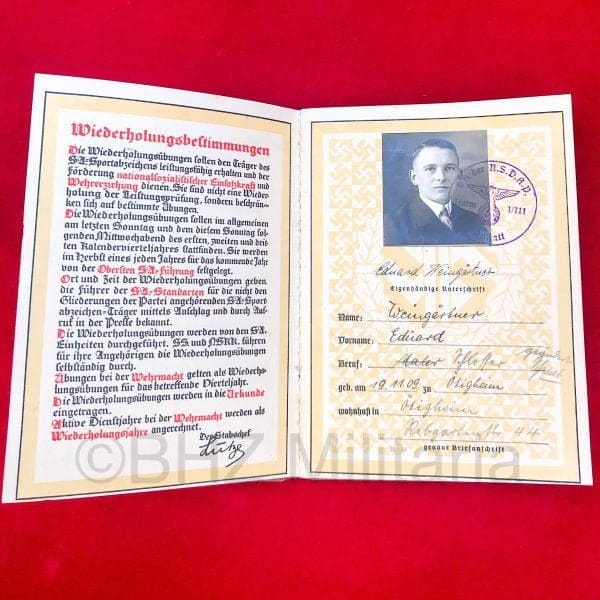 Wiederholungsbestimmungen
Die Wiederholungsübungen sollen den Träger des
SA-Sportabzeichens leistungsfähig erhalten und der
Förderung nationalsozialistischer Einsatzkraft und
Wehrerziehung dienen. Sie sind nicht eine Wieder-
holung der Leistungsprüfung, sondern beschrän-
ken sich auf bestimmte Übungen.
Die Wiederholungsübungen sollen im allgemeinen
am letzten Sonntag und dem diesem Sonntag fol-
genden Mittwochabend des ersten, zweiten und drit-
ten Kalendervierteljahres stattfinden. Sie werden
im Herbst eines jeden Jahres für das kommende Jahr
von der Obersten SA-Führung festgelegt.
Ort und Zeit der Wiederholungsübungen geben
die Führer der SA-Standarten für die nicht den
Gliederungen der Partei angehörenden SA-Sport
abzeichen-Träger mittels Anschlag und durch Auf-
ruf in der Presse bekannt.
Die Wiederholungsübungen werden von den SA.
Einheiten durchgeführt. SS und NSKK. führen
für ihre Angehörigen die Wiederholungsübungen
selbständig durch.
Übungen bei der Wehrmacht gelten als Wiederho-
lungsübungen für das betreffende Vierteljahr.
Die Wiederholungsübungen werden in die Urkunde
eingetragen.
Aktive Dienstjahre bei der Wehrmacht werden als
Wiederholungsjahre angerechnet.
Der Stabschef
Lutze
der N.S.D.A.P.
Sturm 1/111
Eduard Weingärtner
Eigenhändige Unterschrift
Name: Weingärtner
Vorname: Eduard
Beruf: Maler Schlosser
geb. am 19.11.09 zu Ötigheim
wohnhaft in Ötigheim
Rebgartenstr 44
genaue Briefanschrift
©BHZ Militaria